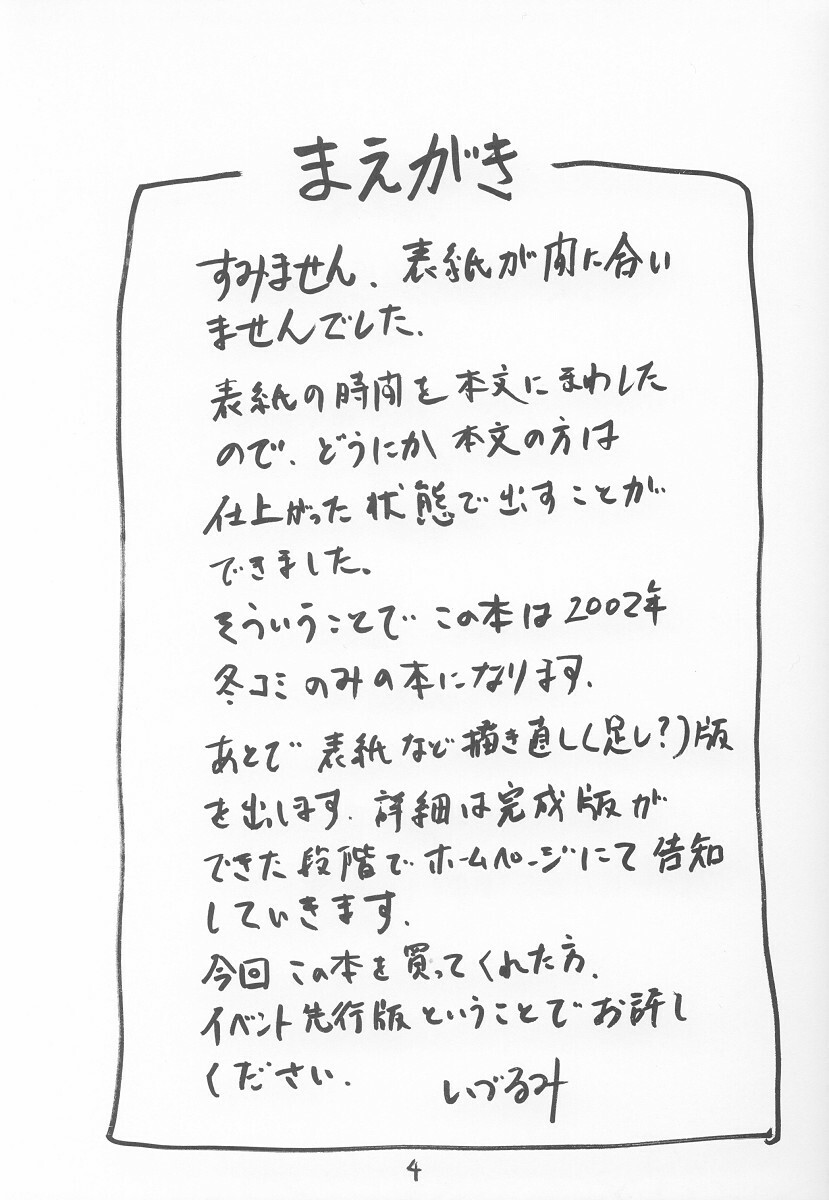 まえがき
すみません、表紙が間に合い
ませんでした.
表紙の時間を本文にまわした
ので、どうにか本文の方は
仕上がった状態で出すことが
できました。
そういうことでこの本は2002年
冬コミのみの本になります.
あとで表紙など描き直し(足し?)版
を出します. 詳細は完成版が
できた段階でホームページにて告知
していきます.
今回この本を買ってくれた方、
イベント先行版ということでお許し
ください.
いづるみ
4